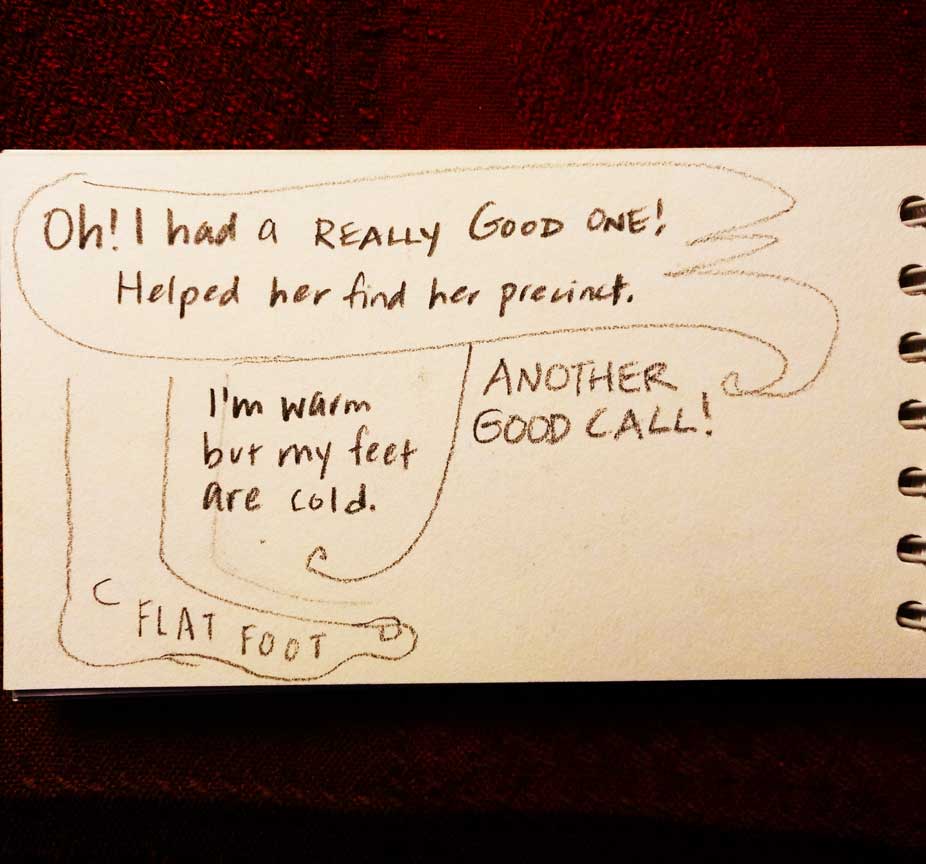 Oh! I had a REALLY GOOD ONE!
Helped her find her precinct.
I'm warm
but my feet
are cold.
ANOTHER
GOOD CALL!
FLAT FOOT